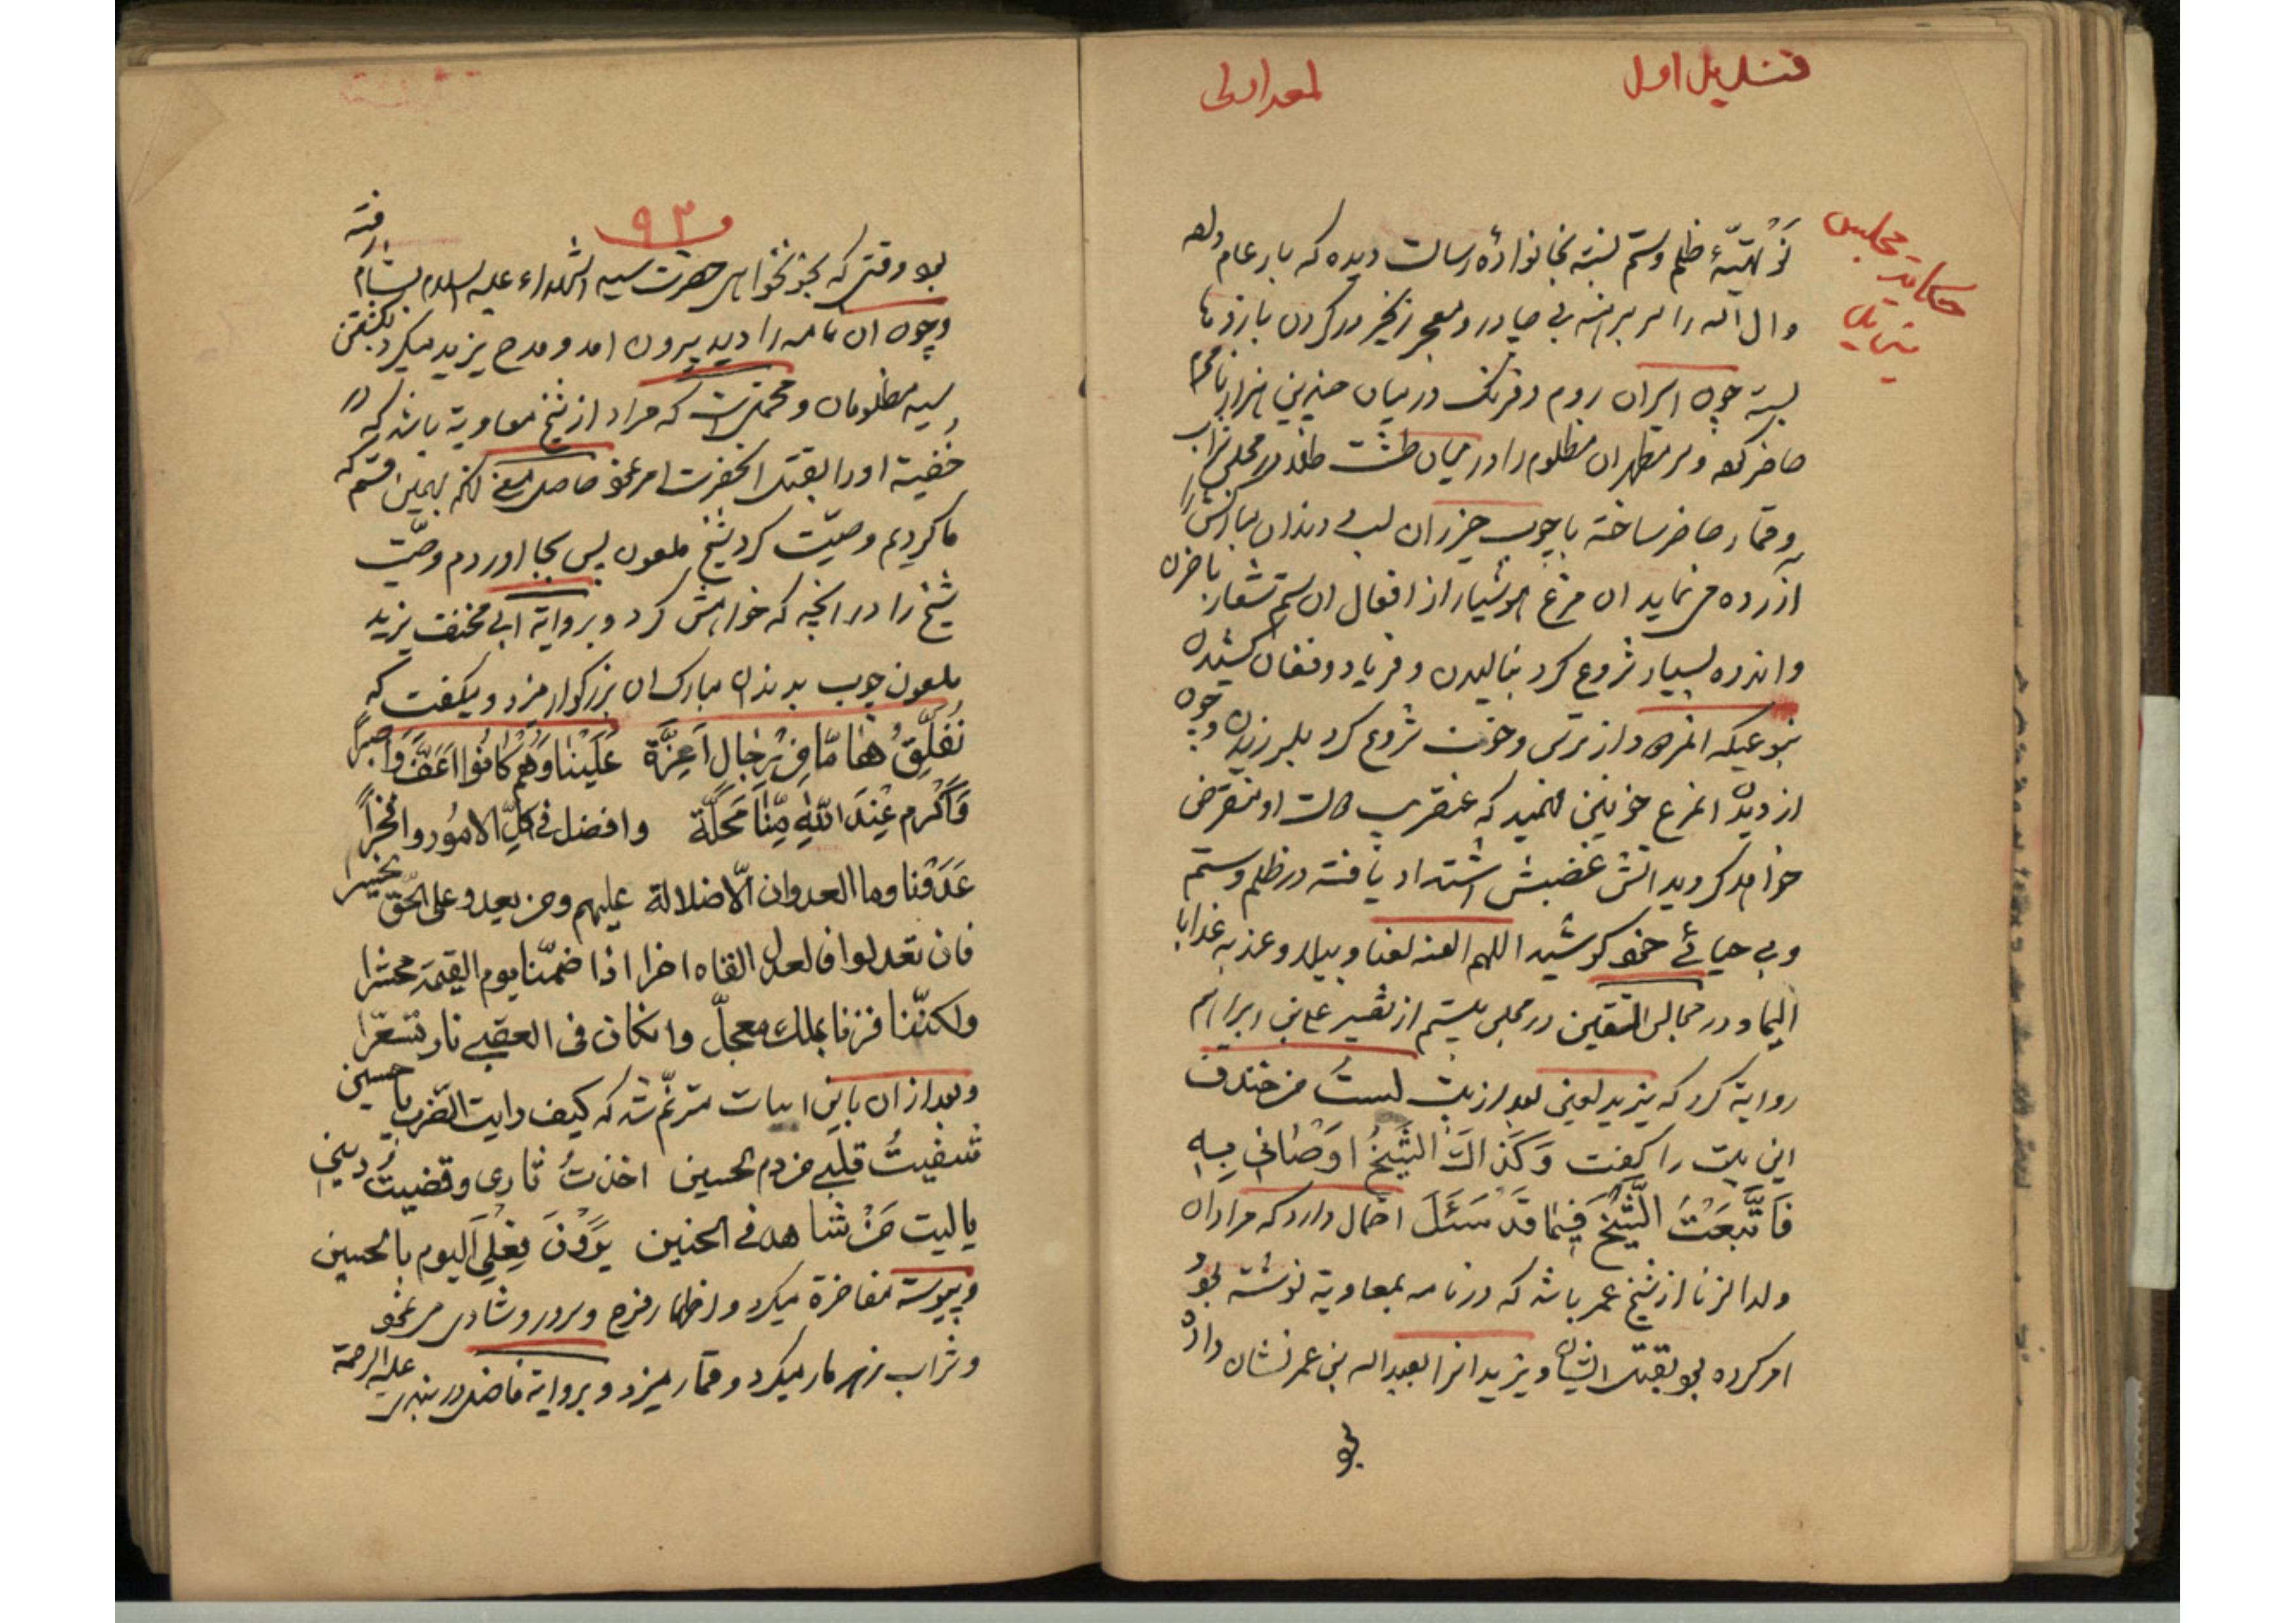 قندیل اول
لمعه اولی
حکایت مجلس
یزید
ظلم و ستم نسبة بخانوادهٔ رسالت دیده که بار عام داده
و ال الله را سر برهنه بی چادر و معجر زنجیر در گردن بازوها
بسته چون اسیران روم و فرنک در میان چندین هزار نامحرم
حاضر کرده و سر مطهر ان مظلوم را در میان طشت طلا در مجلس شراب
و قمار حاضر ساخته با چوب خیزران لب و دندان مبارکش را
ازرده می نماید ان مرغ هوشیار از افعال ان ستم شعار با حزن
و اندوه بسیار شروع کرد بنالیدن و فریاد و فغان کشیدن
بنوعیکه انمردود از ترس و خوف شروع کرد بلرزیدن و چون
از دیدن انمرغ خونین فهمید که عنقریب دولت او منقرض
خواهد کردید اتش غضبش اشتداد یافته در ظلم و ستم
و بی حیائی خود کوشید اللهم العنه لعنا وبیلا و عذبه عذابا
الیما و در مجالس المتقین در مجلس بیستم از تفسیر علی بن ابراهیم
روایة کرد که یزید لعین بعد از بیت لست من خندف
این بیت را کفت وَكَذاكَ الشَّيخُ اوصاني بِهِ
فَاتَّبَعْتُ الشَّيْخَ فيما قَدْ سَئَلَ احتمال دارد که مراد ان
ولد الزنا از شیخ عمر باشد که در نامه بمعاویة نوشته بود
امر کرده بود بقتل ایشان و یزید انرا بعبدالله بن عمر نشان داده
بود
۹۳
بود وقتی که بخونخواهی حضرت سید الشهداء علیه السلام بشام رفته
و چون ان نامه را دید بیرون امد و مدح یزید میکرد بکشتن
سید مظلومان و محتملست که مراد از شیخ معاویة باشد که در
خفیة او را بقتل انحضرت امر نمود حاصل معنی انکه بهمین قسم که
ما کردیم وصیّت کرد شیخ ملعون پس بجا اوردم وصیّت
شیخ را در انچه که خواهش کرد و بروایة ابی مخنف یزید
ملعون چوب بدندان مبارک ان بزرکوار میزد و میکفت که
نُفَلِّقُ هٰامًا مِنْ رِجالٍ اَعِزَّة عَلَيْنا وَهُم كانُوا اَعَقَّ وَاَصبرًا
وَاَكْرَم عِنْدَ اللهِ مِنّا مَحَلَّة وافضل فى كلّ الامُور وافخراً
عَدَوْنا وما العدوان الّا ضلالة عليهم ومن يعدو على الحقّ يخسرا
فان تعدلوا فالعدل القاه اخرا اذا ضمّنا يوم القيمة محشرا
ولكنّنا فزنا بملك معجلّ وانكان فى العقبى نار تسعّرا
و بعد از ان باین ابیات مترنّم شد که كيف رايت الضرب يا حسين
شفيتُ قلبى من دم الحسين اخذتُ ثارى وقضيت ديني
ياليت مَنْ شاهد فى الحنين يَرَوْنَ فِعْلِىَ اليوم بالحسين
و پیوسته مفاخرة میکرد و اظهار فرح و سرور و شادی می نمود
و شراب زهر مار میکرد و قمار میزد و بروایة فاضل دربندی علیه الرحمة